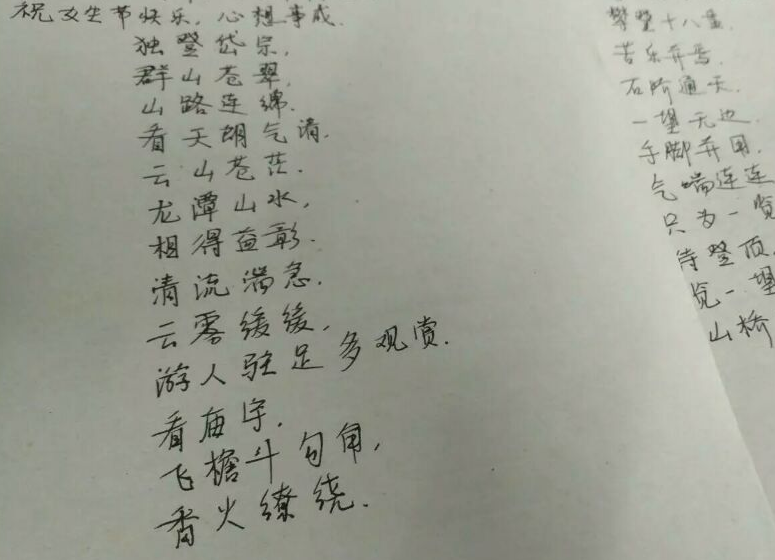 祝女生节快乐，心想事成.
独登岱宗，
群山苍翠，
山路连绵.
看天朗气清，
云山苍茫.
龙潭山水，
相得益彰.
清流湍急.
云雾缓缓，
游人驻足多观赏.
看庙宇，
飞檐斗勾角，
香火缭绕.
攀登十八盘
苦乐弃焉
石阶通天
一望无边
手脚并用
气喘连连
只为一览
待登顶
览一望
山桥